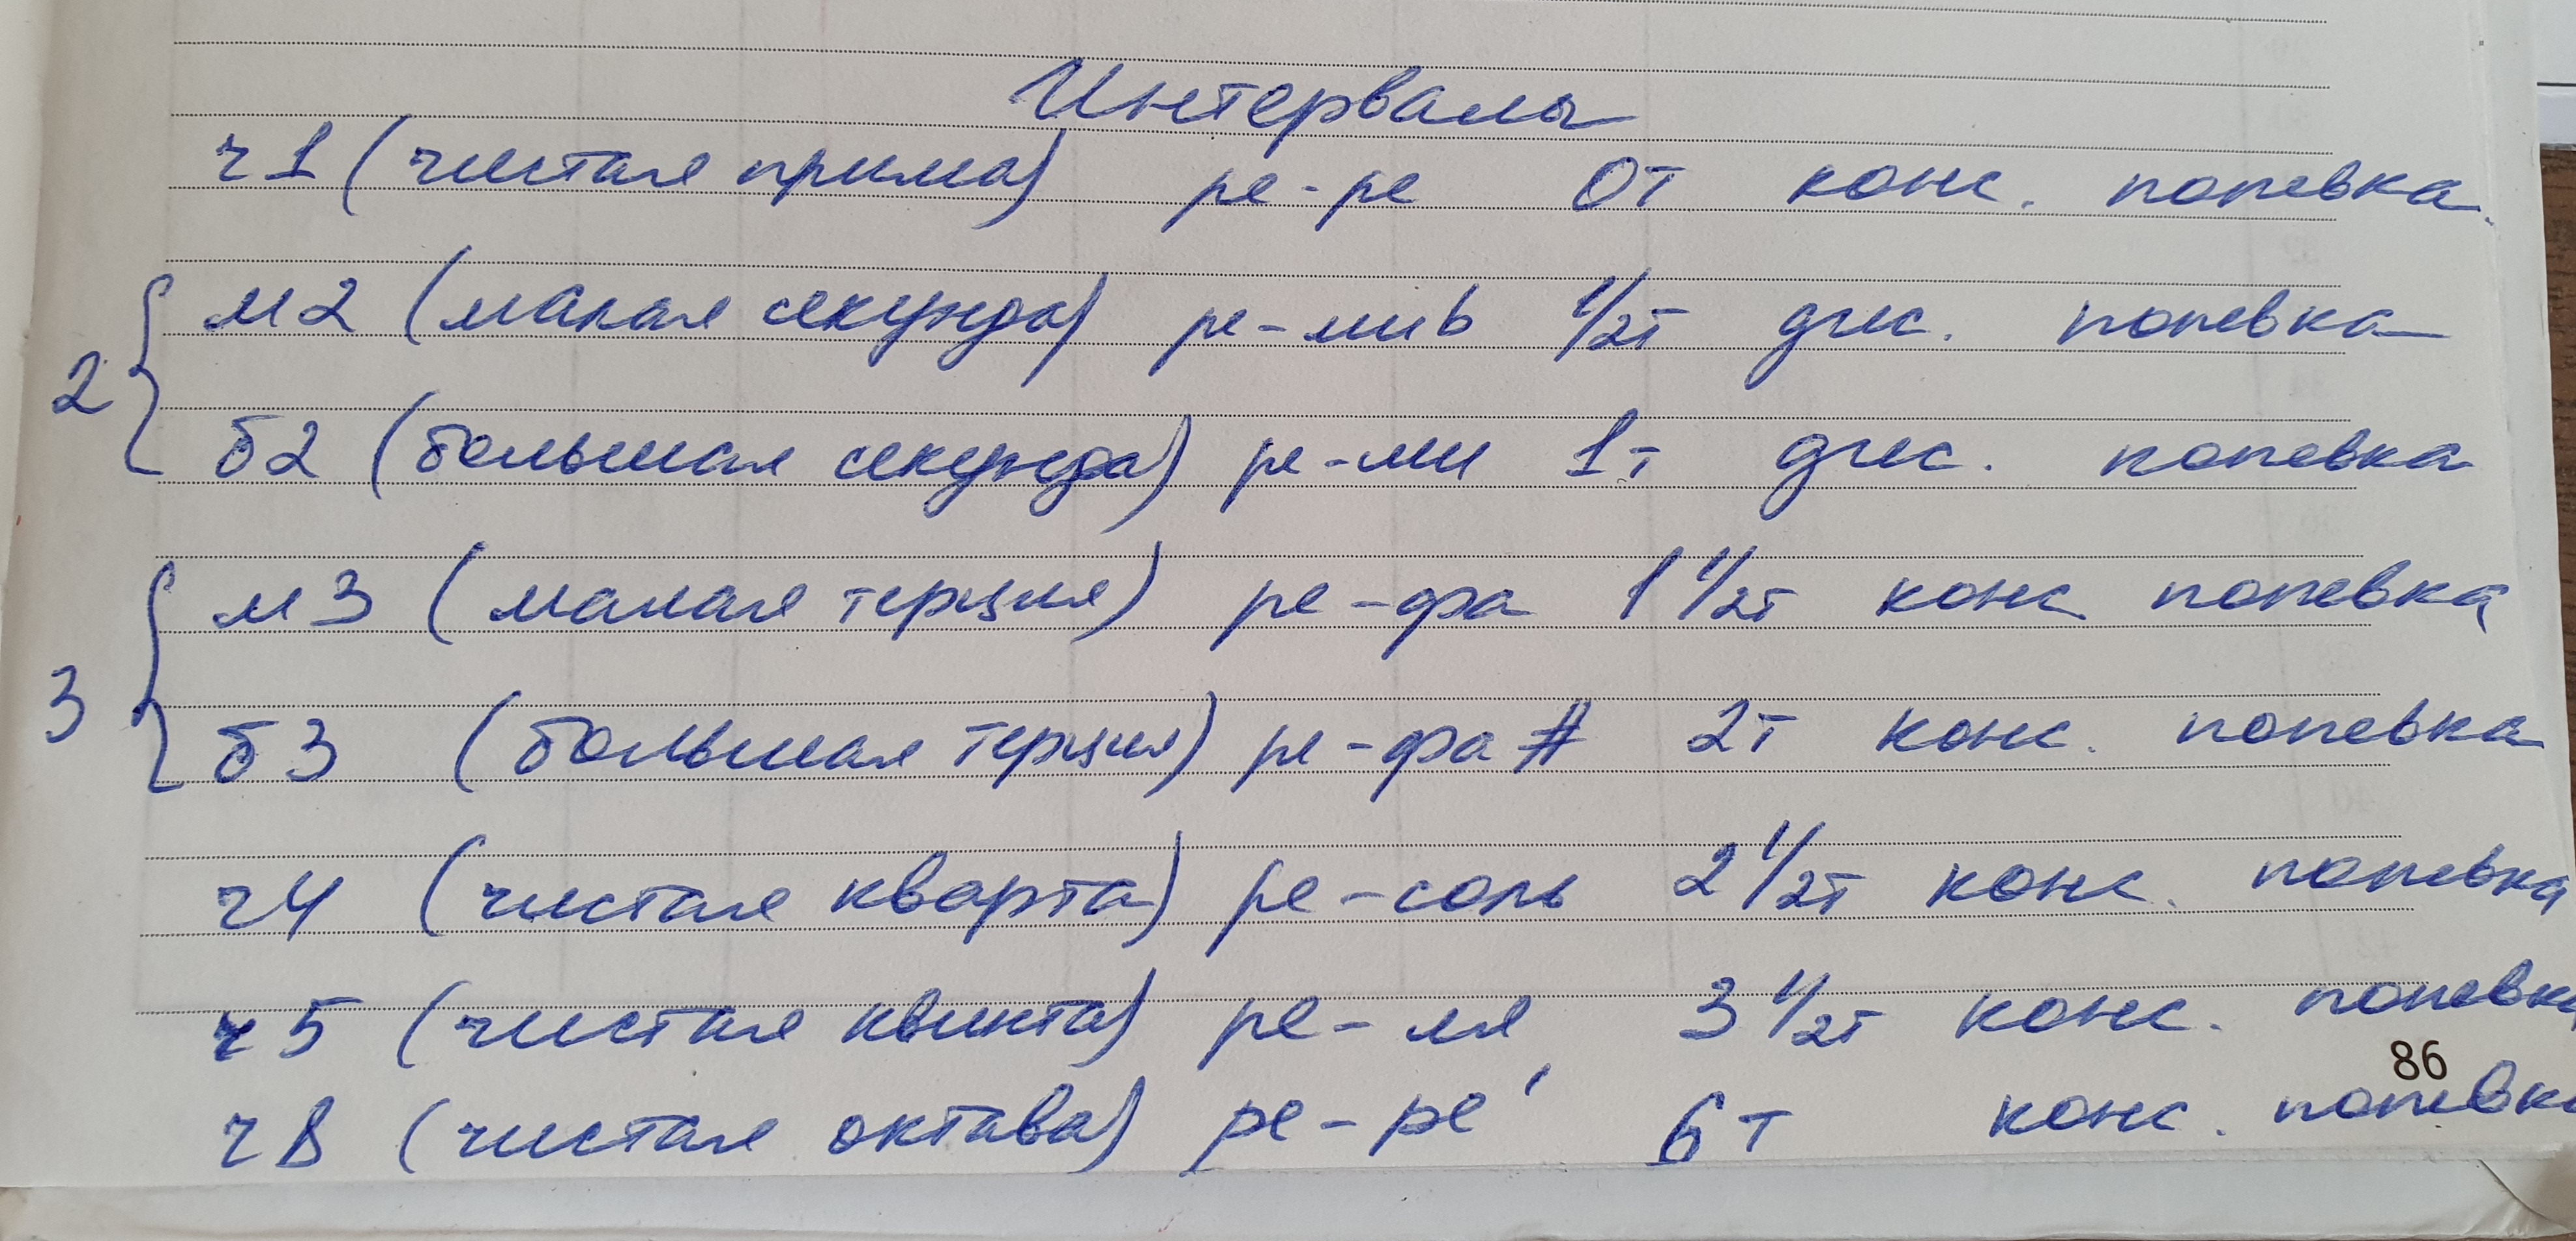 Интервалы
ч1 (чистая прима) ре-ре 0т конс. попевка.
м2 (малая секунда) ре-ми♭ 1/2т дисс. попевка
2
б2 (большая секунда) ре-ми 1т дисс. попевка
м3 (малая терция) ре-фа 1 1/2т конс попевка
3
б3 (большая терция) ре-фа # 2т конс. попевка
ч4 (чистая кварта) ре-соль 2 1/2т конс. попевка
ч5 (чистая квинта) ре-ля 3 1/2т конс. попевка
86
ч8 (чистая октава) ре-ре' 6т конс. попевка